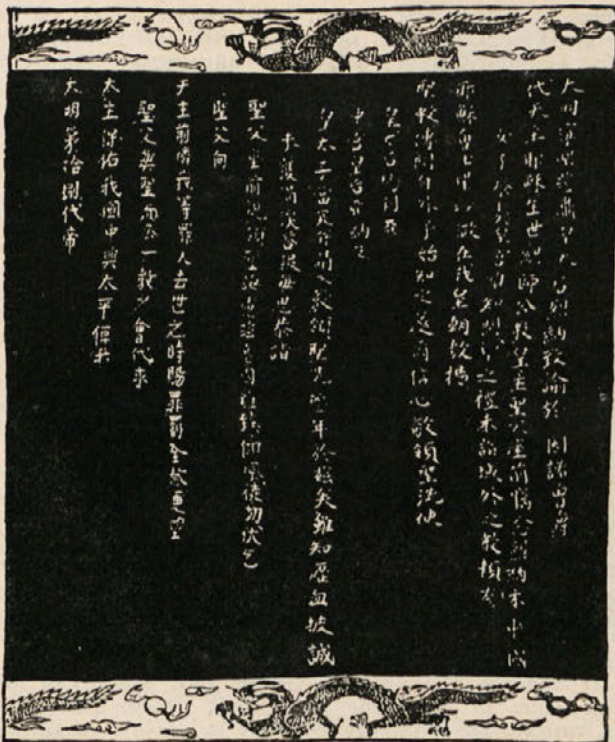 大明寧聖慈肅皇太后烈納致諭於 因諾曾爵
代天主耶穌在世總師公教皇主聖父座前竊念烈納本中國
女子忝處皇宮惟知閫中之禮未諳域外之教賴有
耶穌會士在我皇朝敷揚
聖教傳聞自外予始知之遂爾信心敬領聖洗使
皇太后瑪利亞
中宮皇后亞納及
皇太子當定並請入教領聖洗三年於茲矣雖知瀝血披誠
未獲涓埃答報每思恭詣
聖父座前親領聖誨慮茲遠國難臻仰風徒切伏乞
聖父向
天主前憐我等罪人去世之時賜罪罰全赦更望
聖父與聖而公一教之會代求
天主保佑我國中興太平俾我
大明第拾捌代帝